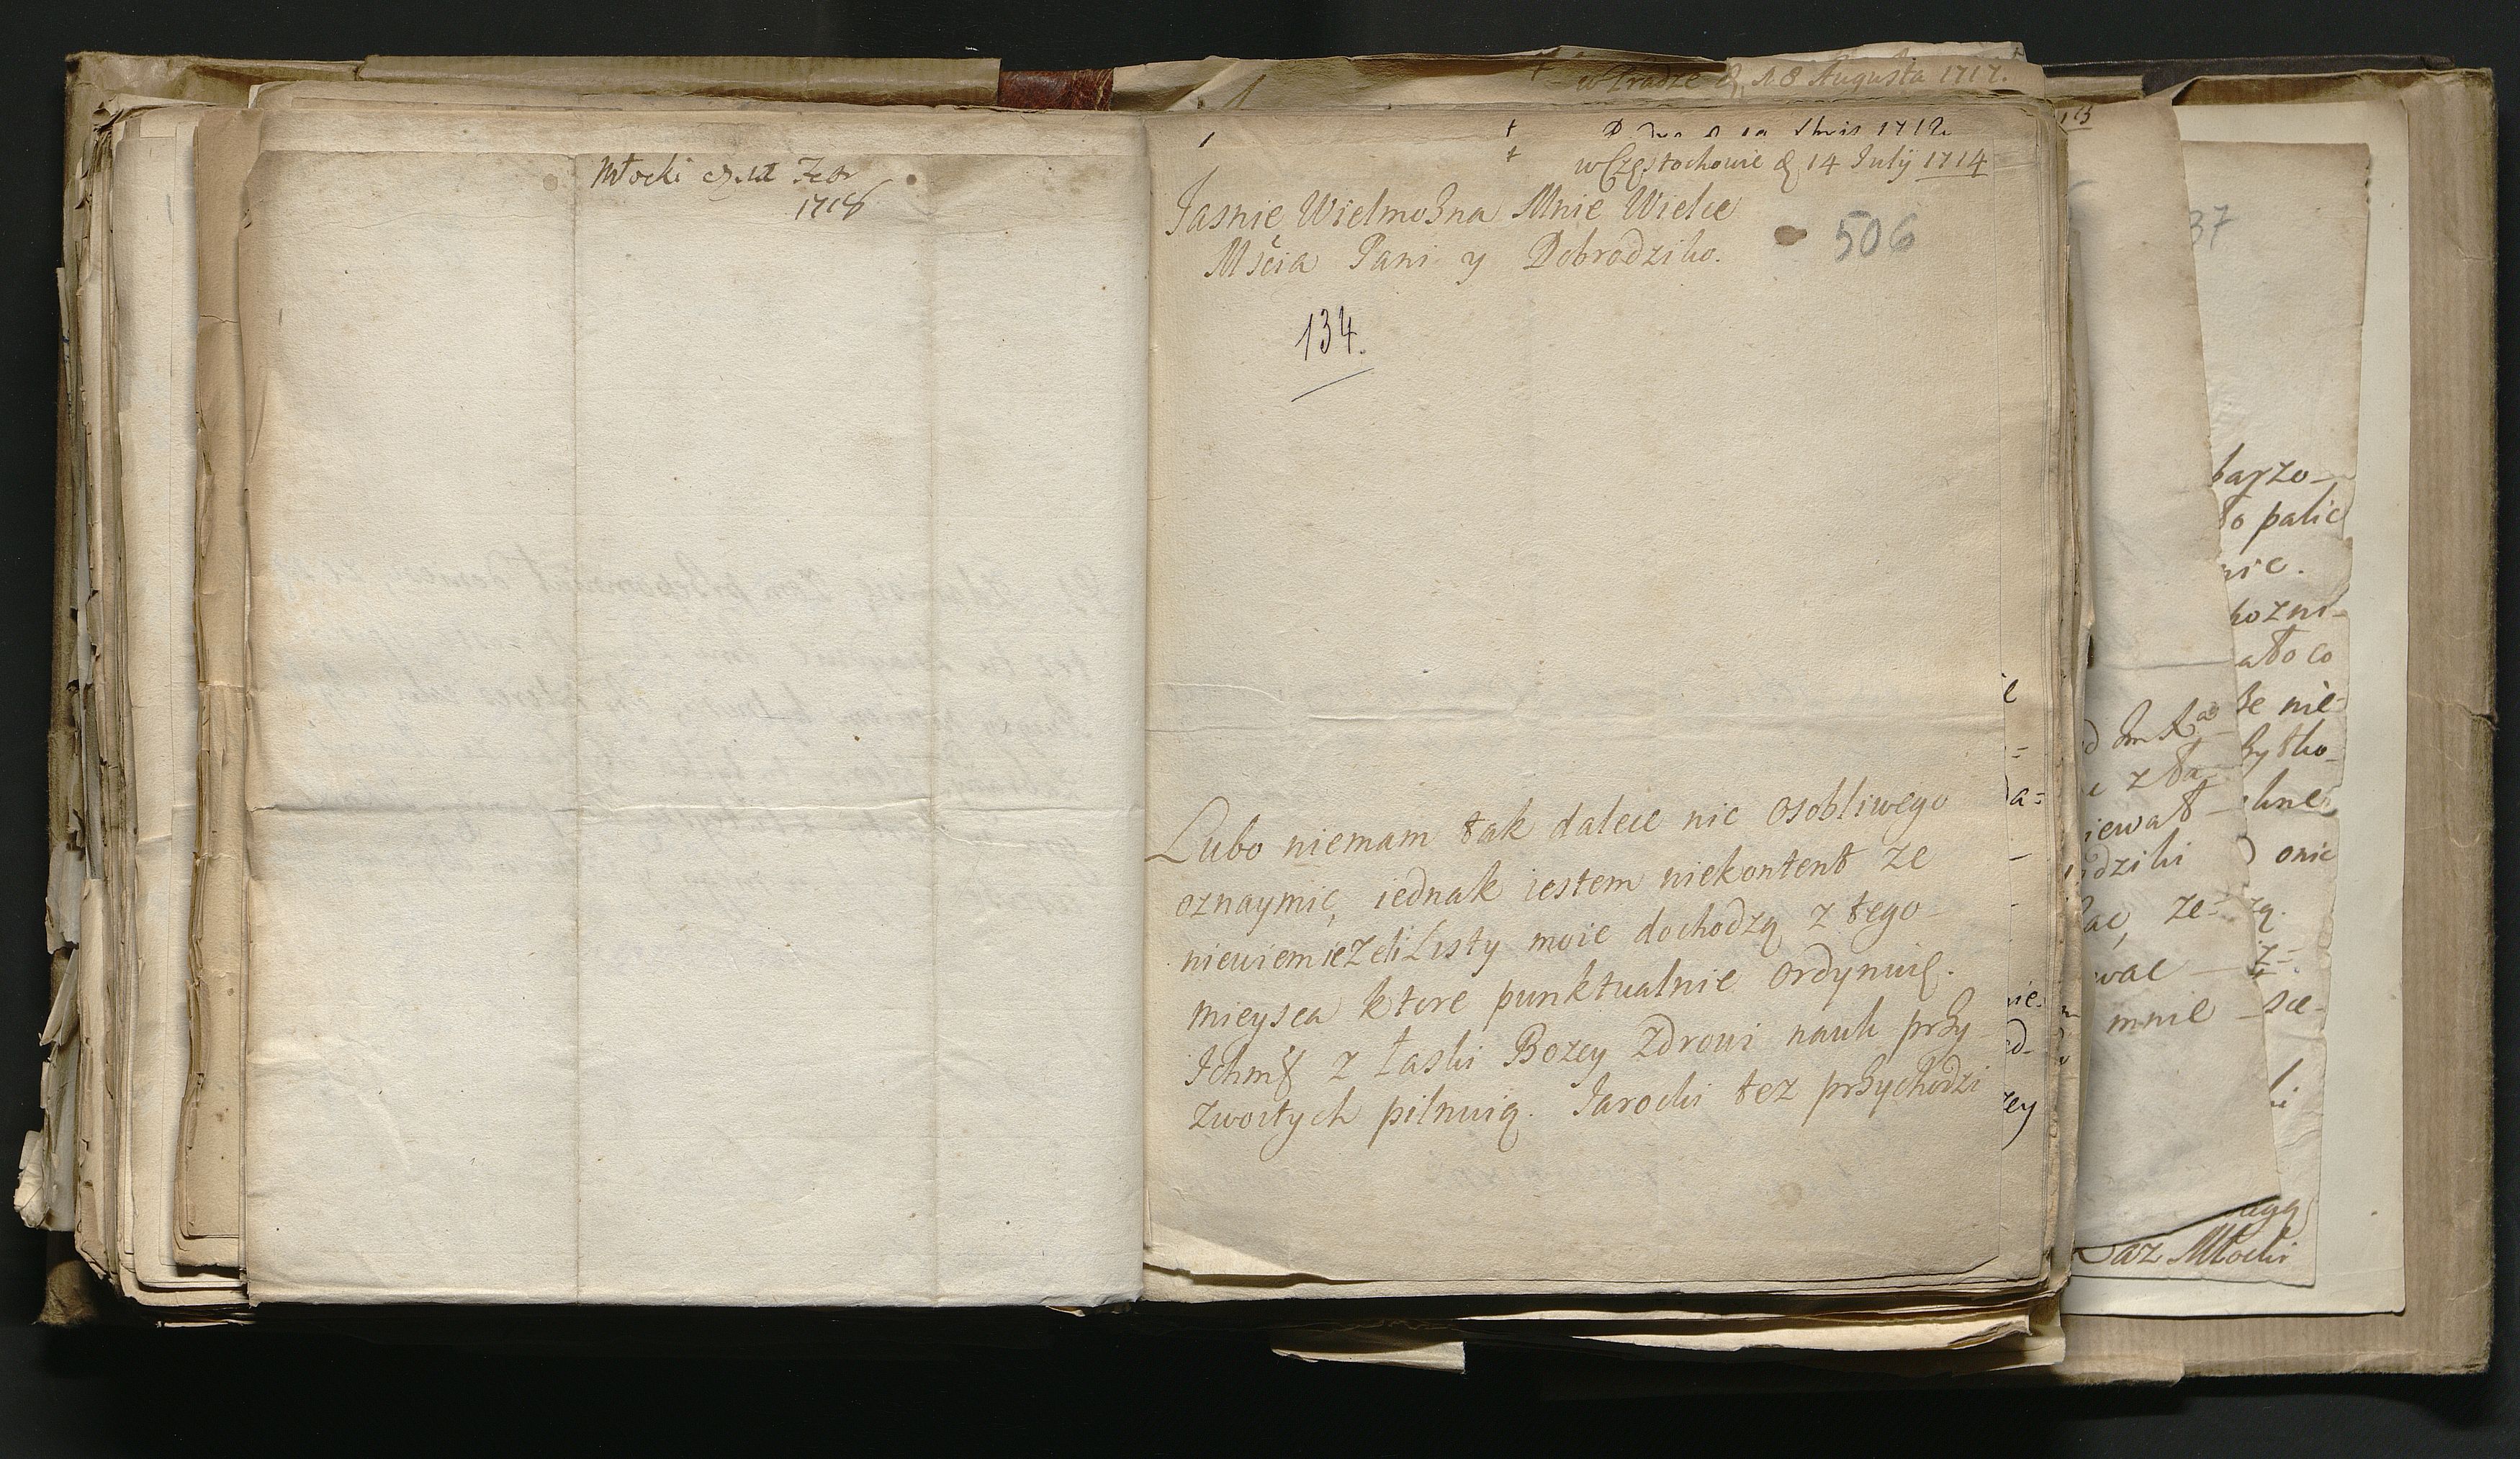 Młocki
Febr
1718
w Pradze d. 8 Augusta 1717.
1712
w Częstochowie d 14 July 1714
Jasnie Wielmożna Mnie Wielce
Mścia Pani y Dobrodziko.
506
134.
Lubo niemam tak dalece nic osobliwego
oznaymić, iednak iestem niekontent ze
niewiem ieżeli Listy moie dochodzą z tego
mieysca ktore punktualnie ordynuię.
Ichmć z Łaski Bozey Zdrowi nauk przy
zwoitych pilnuią. Jarocki tez przychodzi
37
barzo
to palic
nic.
kozni-
ało co
że nie-
żytko
onie
iewał
dziki
ze-
wac
mnie
sce-
zey
az Młocki